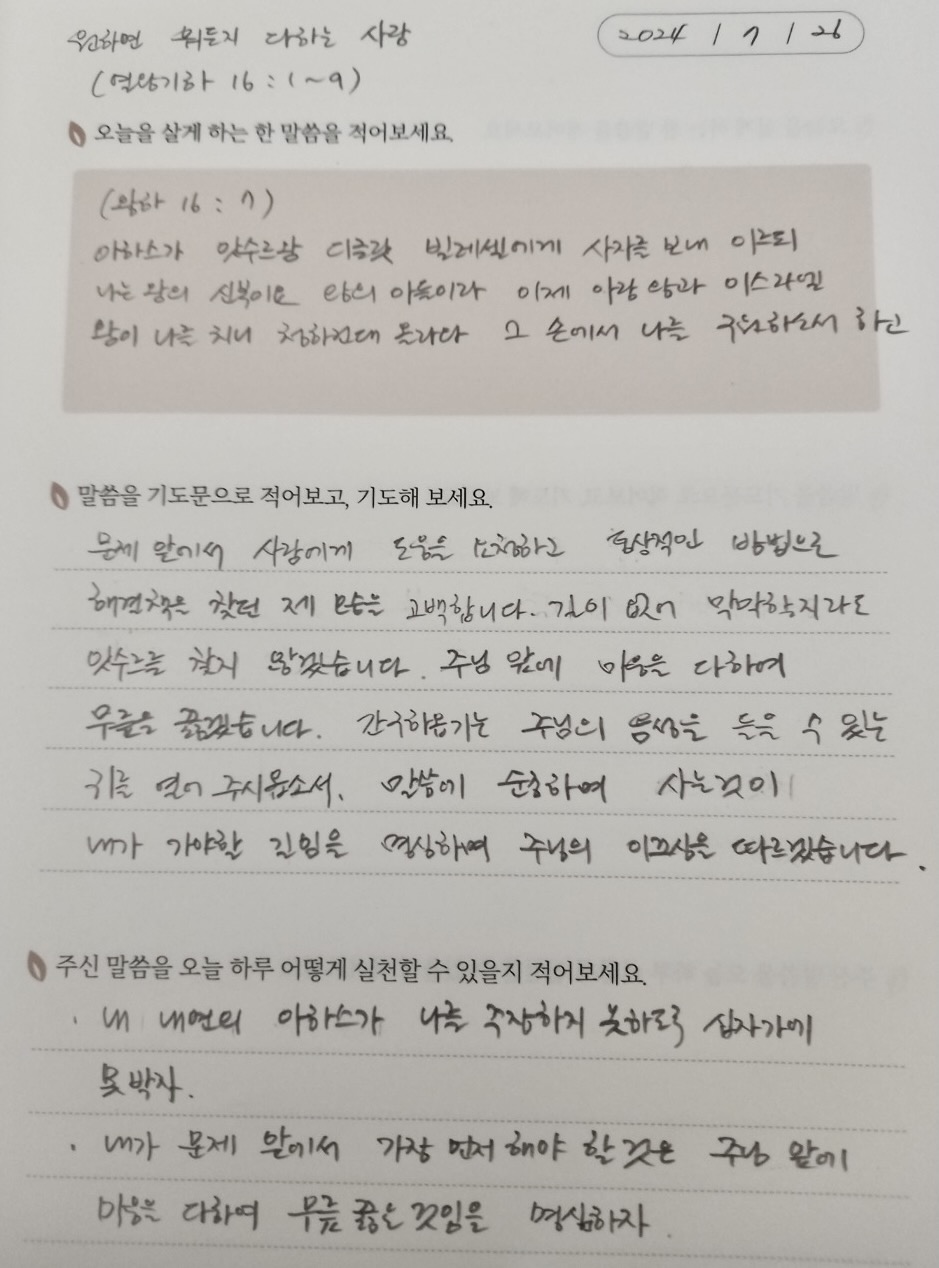 원하면 뭐든지 다하는 사랑
2024 / 7 / 26
(열왕기하 16 : 1 ~ 9)
오늘을 살게 하는 한 말씀을 적어보세요.
(왕하 16 : 7)
아하스가 앗수르왕 디글랏 빌레셀에게 사자를 보내 이르되
나는 왕의 신복이요 왕의 아들이라 이제 아람 왕과 이스라엘
왕이 나를 치니 청하건대 올라와 그 손에서 나를 구원하소서 하고
말씀을 기도문으로 적어보고, 기도해 보세요.
문제 앞에서 사람에게 도움을 요청하고 협상적인 방법으로
해결책을 찾던 제 모습을 고백합니다. 길이 없어 막막할지라도
앗수르를 찾지 않겠습니다. 주님 앞에 마음을 다하여
무릎을 꿇겠습니다. 간구하옵기는 주님의 음성을 들을 수 있는
귀를 열어 주시옵소서. 말씀에 순종하여 사는것이
내가 가야할 길임을 명심하여 주님의 이끄심을 따르겠습니다.
주신 말씀을 오늘 하루 어떻게 실천할 수 있을지 적어보세요.
· 내 내면의 아하스가 나를 주장하지 못하도록 십자가에
못 박자.
· 내가 문제 앞에서 가장 먼저 해야 할 것은 주님 앞에
마음을 다하여 무릎 꿇는 것임을 명심하자.